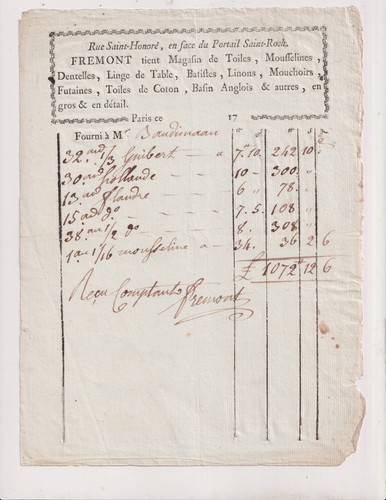 Rue Saint-Honoré, en face du Portail Saint-Roch.
FREMONT tient Magasin de Toiles, Mousselines,
Dentelles, Linge de Table, Batistes, Linons, Mouchoirs,
Futaines, Toiles de Coton, Basin Anglois & autres, en
gros & en détail.
Paris ce 17
Fourni à Mr Baudineau
32 au 1/3 Guibert — a 7" 10. 242 10
30 au hollande — 10 — 300. "
13 au flandre — 6 " 78. "
15 au do — 7. 5. 108 "
38 au 1/2 do — 8. 308 "
1 au 1/16 mousseline a — 34. 36 2 6
£ 1072 12 6
Reçu Comptant Fremont